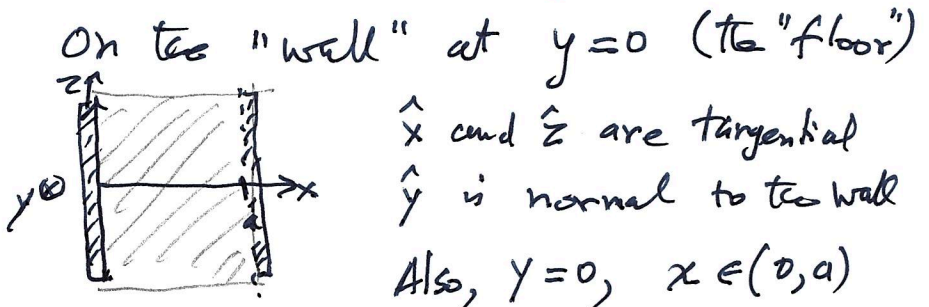 On the "wall" at y=0 (the "floor")
z
x̂ and ẑ are tangential
y ⊗ x
ŷ is normal to the wall
a
Also, y=0, x ∈ (0,a)